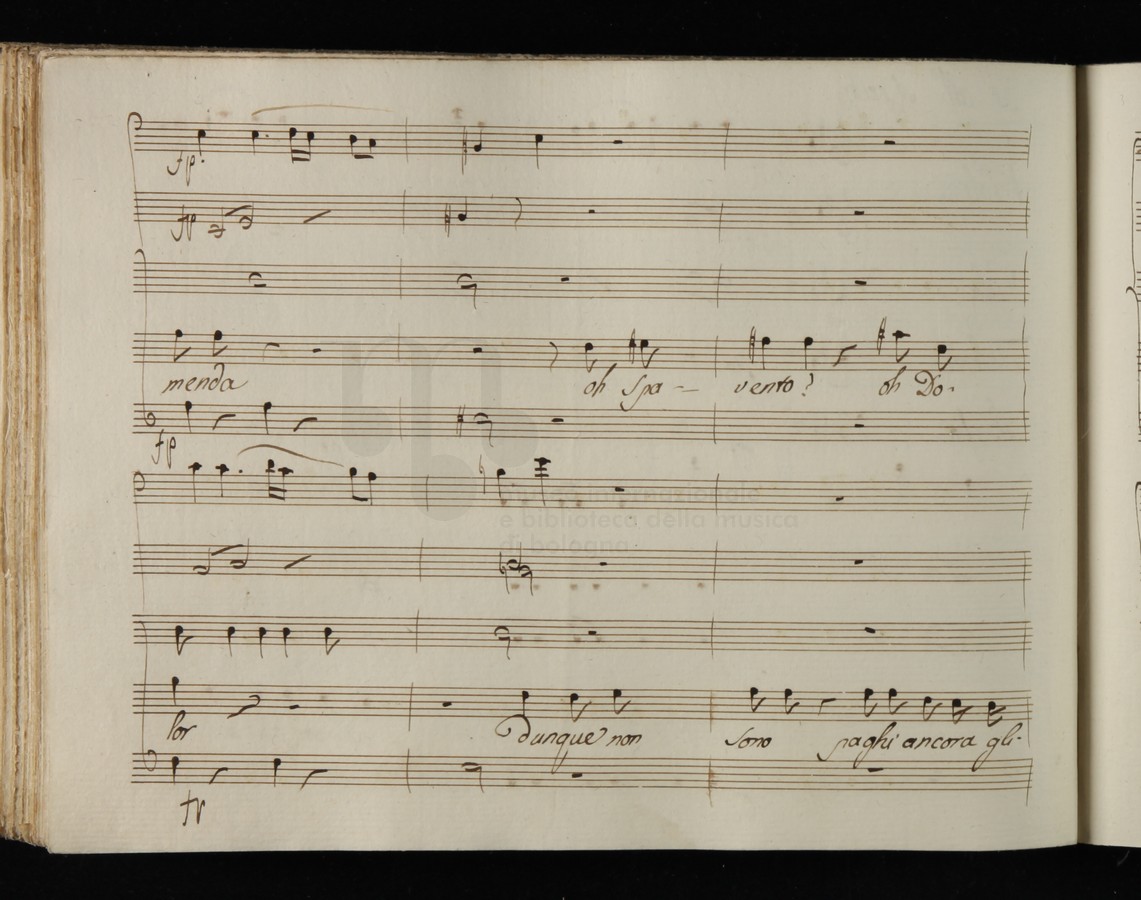 fp.
fp
menda oh Spa - vento? oh Do-
fp
museo internazionale
e biblioteca della musica
di bologna
lor dunque non sono paghi ancora gli-